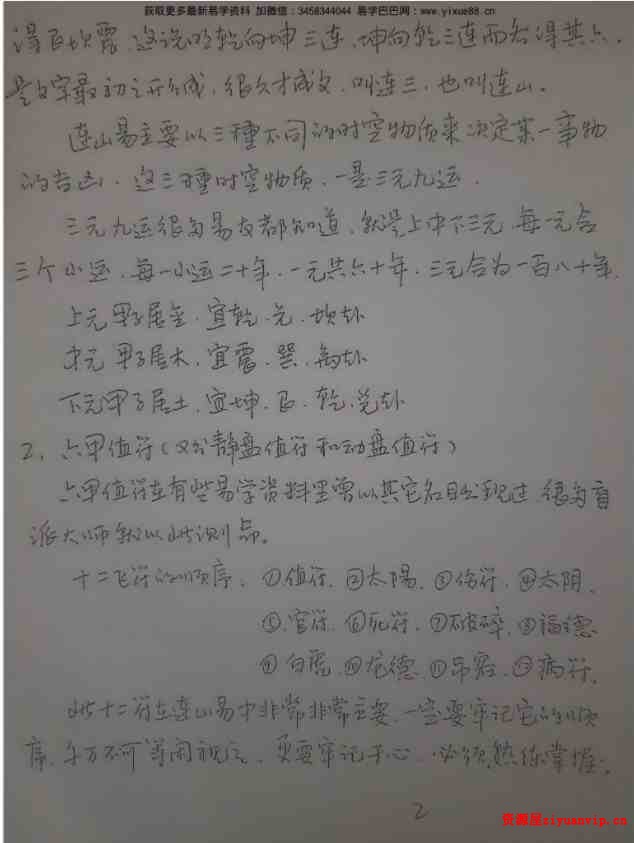 获取更多最新易学资料 加微信：3458344044 易学巴巴网：www.yixue88.cn
得艮坎震，这说明乾向坤三连，坤向乾三连而各得其六，
是文字最初之形成，很久才成文，叫连三，也叫连山。
连山易主要以三種不同的时空物质来决定某一事物
的吉凶，这三種时空物质，一是三元九运，
三元九运很多易友都知道，就是上中下三元，每一元含
三个小运，每一小运二十年，一元共六十年，三元合为一百八十年，
上元甲子居金，宜乾、兑、坎卦
中元甲子居木，宜震、巽、离卦
下元甲子居土，宜坤、艮、乾、兑卦
2、六甲值符（又分静盘值符和动盘值符）
六甲值符在有些易学资料里曾以其它名目出现过，很多盲
派大师就以此识别品。
十二飞符的顺序，①值符，②太陽，③傷符，④太阴，
⑤官符，⑥死符，⑦破碎，⑧福德
⑨白虎，⑩龙德，⑪吊客，⑫病符，
此十二符在连山易中非常非常主要，一定要牢记它的顺
序，千万不可等闲视之，更要牢记于心，必须熟练掌握；
2
资源屋ziyuanvip.cn